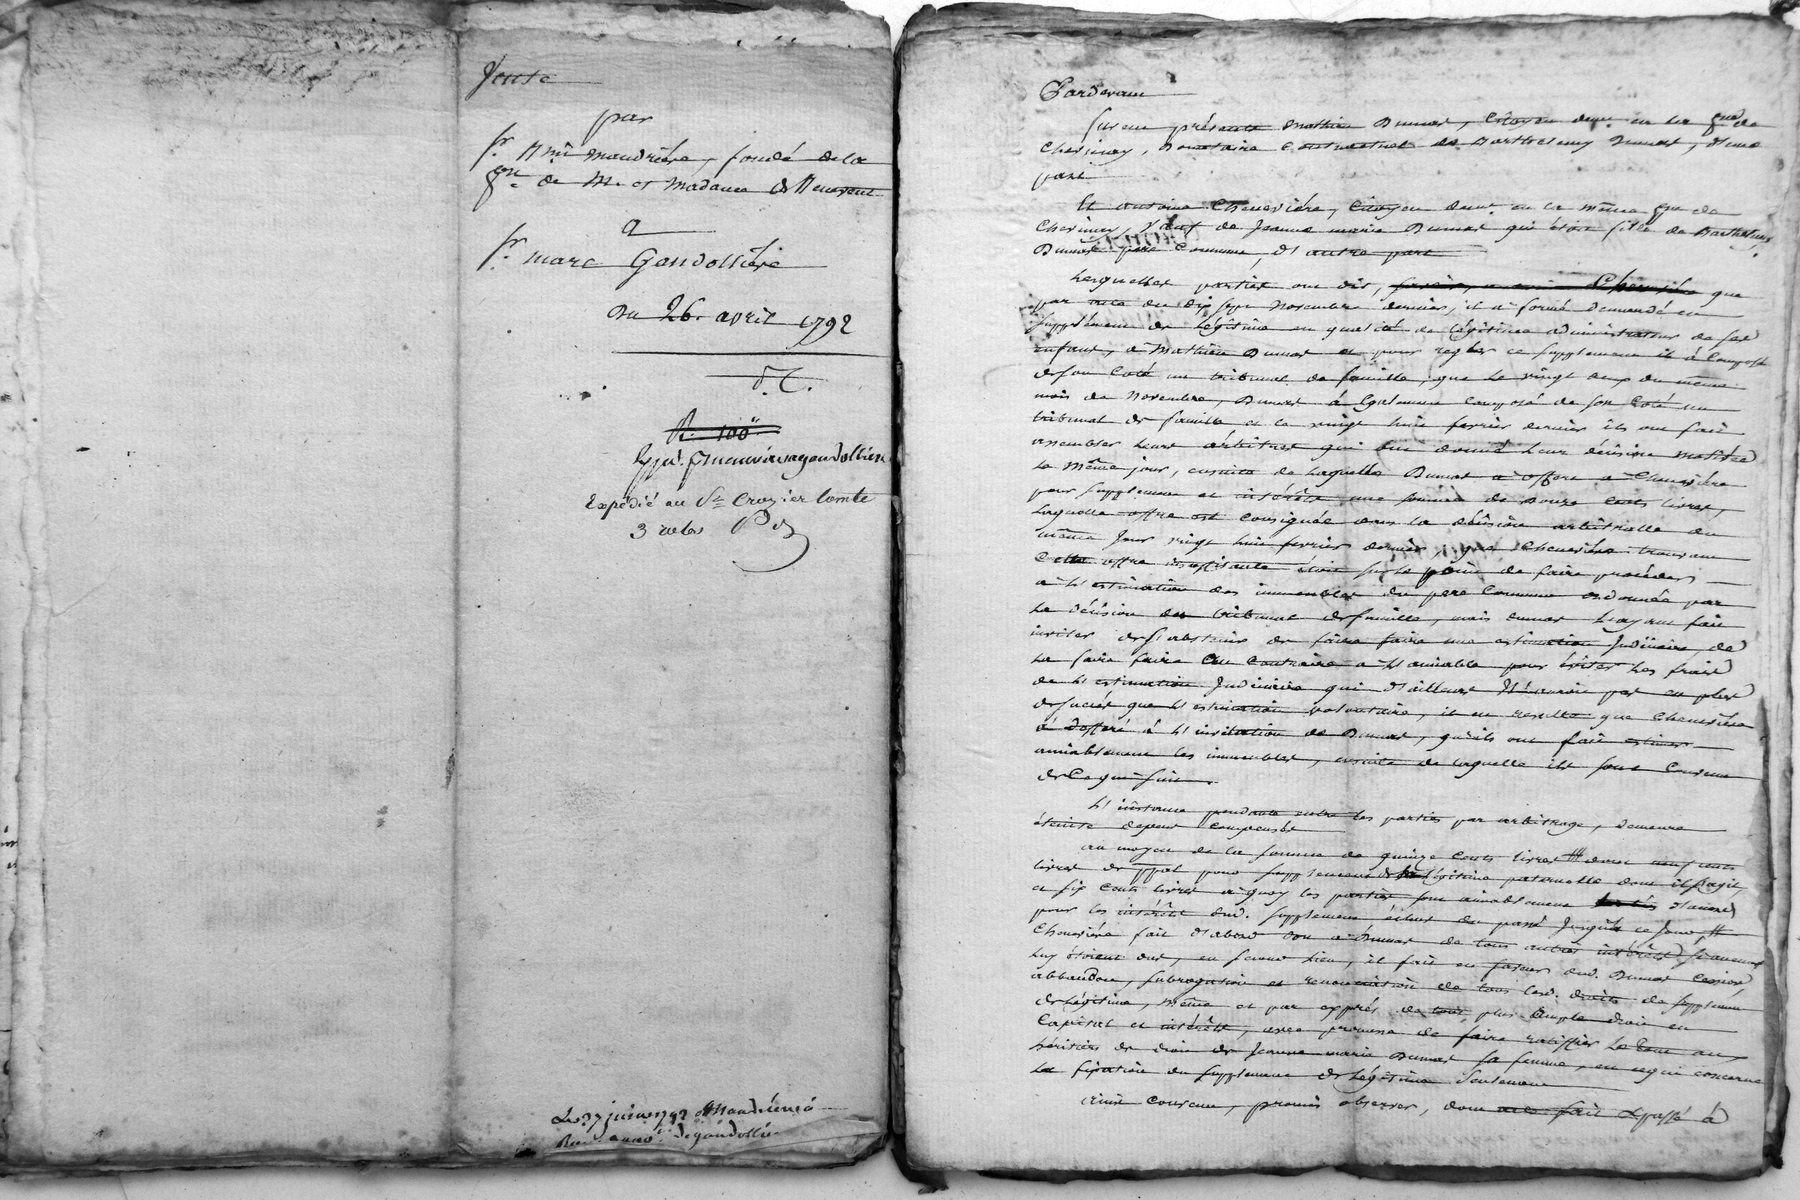 Vente
par
Sr. Bmi mandrière, fondé de la
pon. de Mr. et Madame de Benevent
a
Sr. marc Gondollière
Du 26. avril 1792
d. C.
R. 100
Expédié au Sr. Crozier Comte
3 roles
Le 27 juin 1792
Pardevant
furent présents Mathieu Dumas, Citoyen demt. en la pse. de
Chevinay, Donataire Contractuel de Barthelemy Dumas, d'une
part
Et antoine Chenevière, Citoyen demt. en la même pse. de
Chevinay, Veuf de Jeanne marie Dumas qui étoit fille de Barthelemy
Dumas père Commun, d'autre part
Lesquelles parties ont dit, que
par acte du dix sept novembre dernier, il a formé demande en
supplément de légitime en qualité de légitime administrateur de ses
enfans, à Mathieu Dumas et pour regler ce supplement il a Composé
de son Coté un tribunal de famille, que le vingt deux du même
mois de Novembre, Dumas a égallement Composé de son Coté un
tribunal de famille et le vingt huit fevrier dernier ils ont fait
assembler leurs arbitres qui ont donné leur décision motivée
le même jour, ensuite de laquelle Dumas a offert à Chenevière
pour supplement et intérêts une somme de Douze Cents livres,
laquelle offre est Consignée dans la décision arbitralle du
même jour vingt huit fevrier dernier, que Chenevière trouvant
Cette offre insuffisante étoit sur le point de faire procéder
à l'estimation des immeubles du pere Commun ordonnée par
la décision du tribunal de famille, mais Dumas l'ayant fait
inviter de s'abstenir de faire faire une estimation Judiciaire, de
la faire faire au Contraire à l'amiable pour éviter les frais
de l'estimation Judiciaire qui d'ailleurs n'auroit pas eu plus
de succès que l'estimation volontaire, il en resulte que Chenevière
a défféré à l'invitation de Dumas, qu'ils ont fait estimer
amiablement les immeubles, ensuite de laquelle ils sont Convenu
de Ce qui suit.
L'instance pendante entre les parties par arbitrage, demeure
éteinte depens Compensés
au moyen de la somme de quinze Cents livres dont neuf cents
livres de ppal pour supplement de légitime paternelle dont il s'agit,
et six Cents livres à quoy les parties sont amiablement d'accord
pour les intérêts dud. supplement échus du passé Jusqu'à ce jour,
Chenevière fait d'abord don à Dumas de tous autres intérêts si aucuns
luy étoient dus, en second lieu, il fait en faveur dud. Dumas Cession,
abbandon, subrogation et renonciation de tous lesd. droits de supplement
de légitime, même et par exprès de tous plus ample droit en
Capital et intérêts, avec promesse de faire ratiffier le tout aux
héritiers de droit de Jeanne marie Dumas sa femme, en ce qui concerne
la fixation du supplement de légitime seulement
ainsi Convenu, promis observer, dont acte fait et passé à